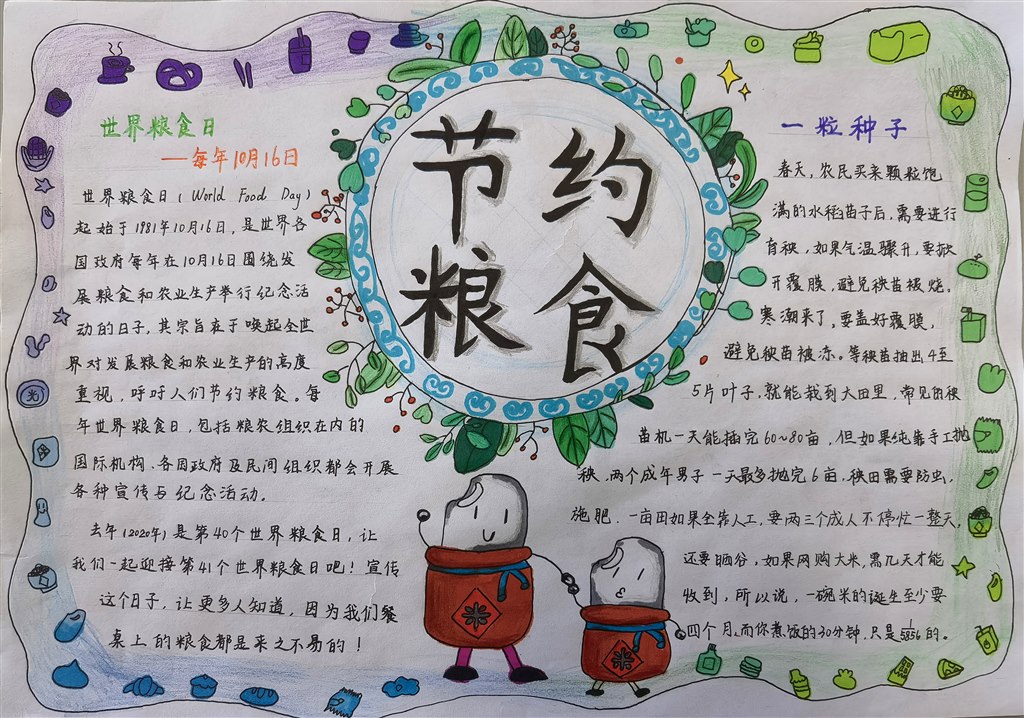 节约
粮食
世界粮食日
——每年10月16日
世界粮食日(World Food Day)
起始于1981年10月16日,是世界各
国政府每年在10月16日围绕发
展粮食和农业生产举行纪念活
动的日子,其宗旨在于唤起全世
界对发展粮食和农业生产的高度
重视,呼吁人们节约粮食。每
年世界粮食日,包括粮农组织在内的
国际机构、各国政府及民间组织都会开展
各种宣传与纪念活动。
去年(2020年)是第40个世界粮食日,让
我们一起迎接第41个世界粮食日吧!宣传
这个日子,让更多人知道,因为我们餐
桌上的粮食都是来之不易的!
一粒种子
春天,农民买来颗粒饱
满的水稻苗子后,需要进行
育秧,如果气温骤升,要掀
开覆膜,避免秧苗被烧。
寒潮来了,要盖好覆膜,
避免秧苗被冻。等秧苗抽出4至
5片叶子,就能栽到大田里,常见的秧
苗机一天能插完60~80亩,但如果纯靠手工抛
秧,两个成年男子一天最多抛完6亩,秧田需要防虫,
施肥.一亩田如果全靠人工,要两三个成人不停忙一整天,
还要晒谷,如果网购大米,需几天才能
收到,所以说,一碗米的诞生至少要
四个月,而你煮饭的30分钟,只是1/5856的。
米
米
光